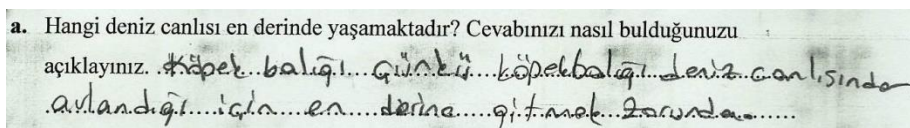 a. Hangi deniz canlısı en derinde yaşamaktadır? Cevabınızı nasıl bulduğunuzu
açıklayınız. Köpek balığı Çünkü köpekbalığı deniz canlısından
avlandığı için en derine gitmek zorunda